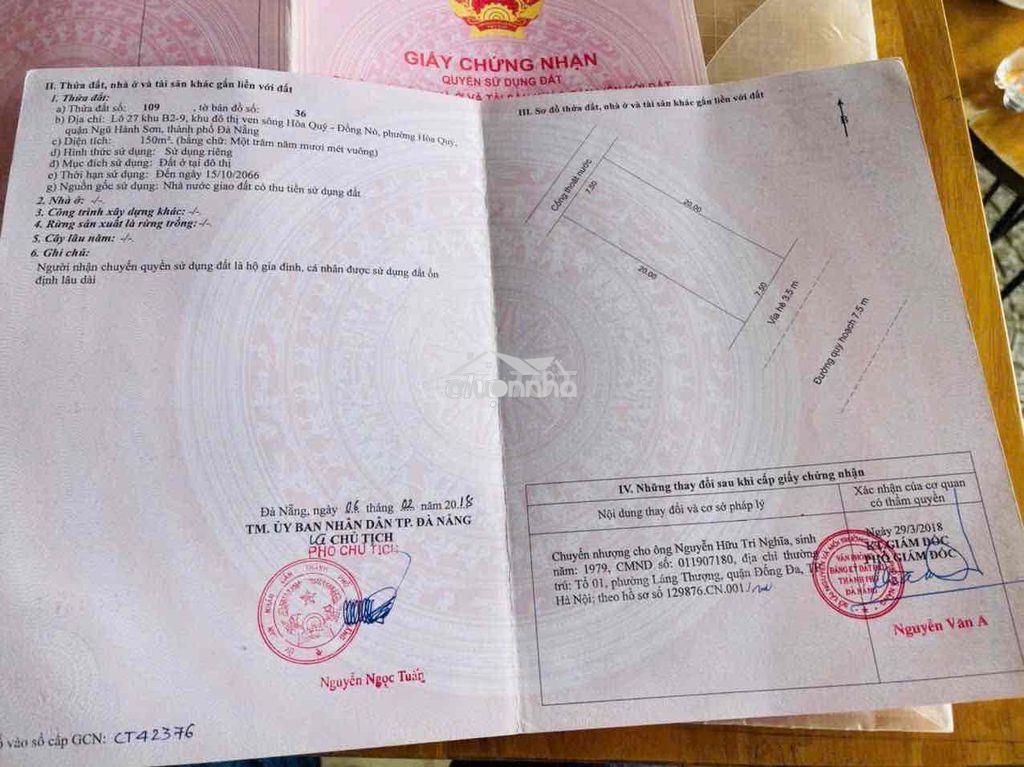 GIẤY CHỨNG NHẬN
QUYỀN SỬ DỤNG ĐẤT
II. Thửa đất, nhà ở và tài sản khác gắn liền với đất
1. Thửa đất:
a) Thửa đất số: 109 , tờ bản đồ số: 36
b) Địa chỉ: Lô 27 khu B2-9, khu đô thị ven sông Hòa Quý - Đồng Nò, phường Hòa Quý,
quận Ngũ Hành Sơn, thành phố Đà Nẵng
c) Diện tích: 150m². (bằng chữ: Một trăm năm mươi mét vuông)
d) Hình thức sử dụng: Sử dụng riêng
đ) Mục đích sử dụng: Đất ở tại đô thị
e) Thời hạn sử dụng: Đến ngày 15/10/2066
g) Nguồn gốc sử dụng: Nhà nước giao đất có thu tiền sử dụng đất
2. Nhà ở: -/-
3. Công trình xây dựng khác: -/-
4. Rừng sản xuất là rừng trồng: -/-
5. Cây lâu năm: -/-
6. Ghi chú:
Người nhận chuyển quyền sử dụng đất là hộ gia đình, cá nhân được sử dụng đất ổn
định lâu dài
Đà Nẵng, ngày 06 tháng 02 năm 2018
TM. ỦY BAN NHÂN DÂN TP. ĐÀ NẴNG
CHỦ TỊCH
PHÓ CHỦ TỊCH
Nguyễn Ngọc Tuấn
vào sổ cấp GCN: CT42376
III. Sơ đồ thửa đất, nhà ở và tài sản khác gắn liền với đất
B
Cống thoát nước
7.50
20.00
20.00
7.50
Vỉa hè 3.5 m
Đường quy hoạch 7.5 m
muonnha
IV. Những thay đổi sau khi cấp giấy chứng nhận
Nội dung thay đổi và cơ sở pháp lý
Xác nhận của cơ quan
có thẩm quyền
Chuyển nhượng cho ông Nguyễn Hữu Trí Nghĩa, sinh
năm: 1979, CMND số: 011907180, địa chỉ thường
trú: Tổ 01, phường Láng Thượng, quận Đống Đa, TP.
Hà Nội; theo hồ sơ số 129876.CN.001./
Ngày 29/3/2018
KT.GIÁM ĐỐC
PHÓ GIÁM ĐỐC
VĂN PHÒNG
ĐĂNG KÝ ĐẤT ĐAI
THÀNH PHỐ
ĐÀ NẴNG
Nguyễn Văn A